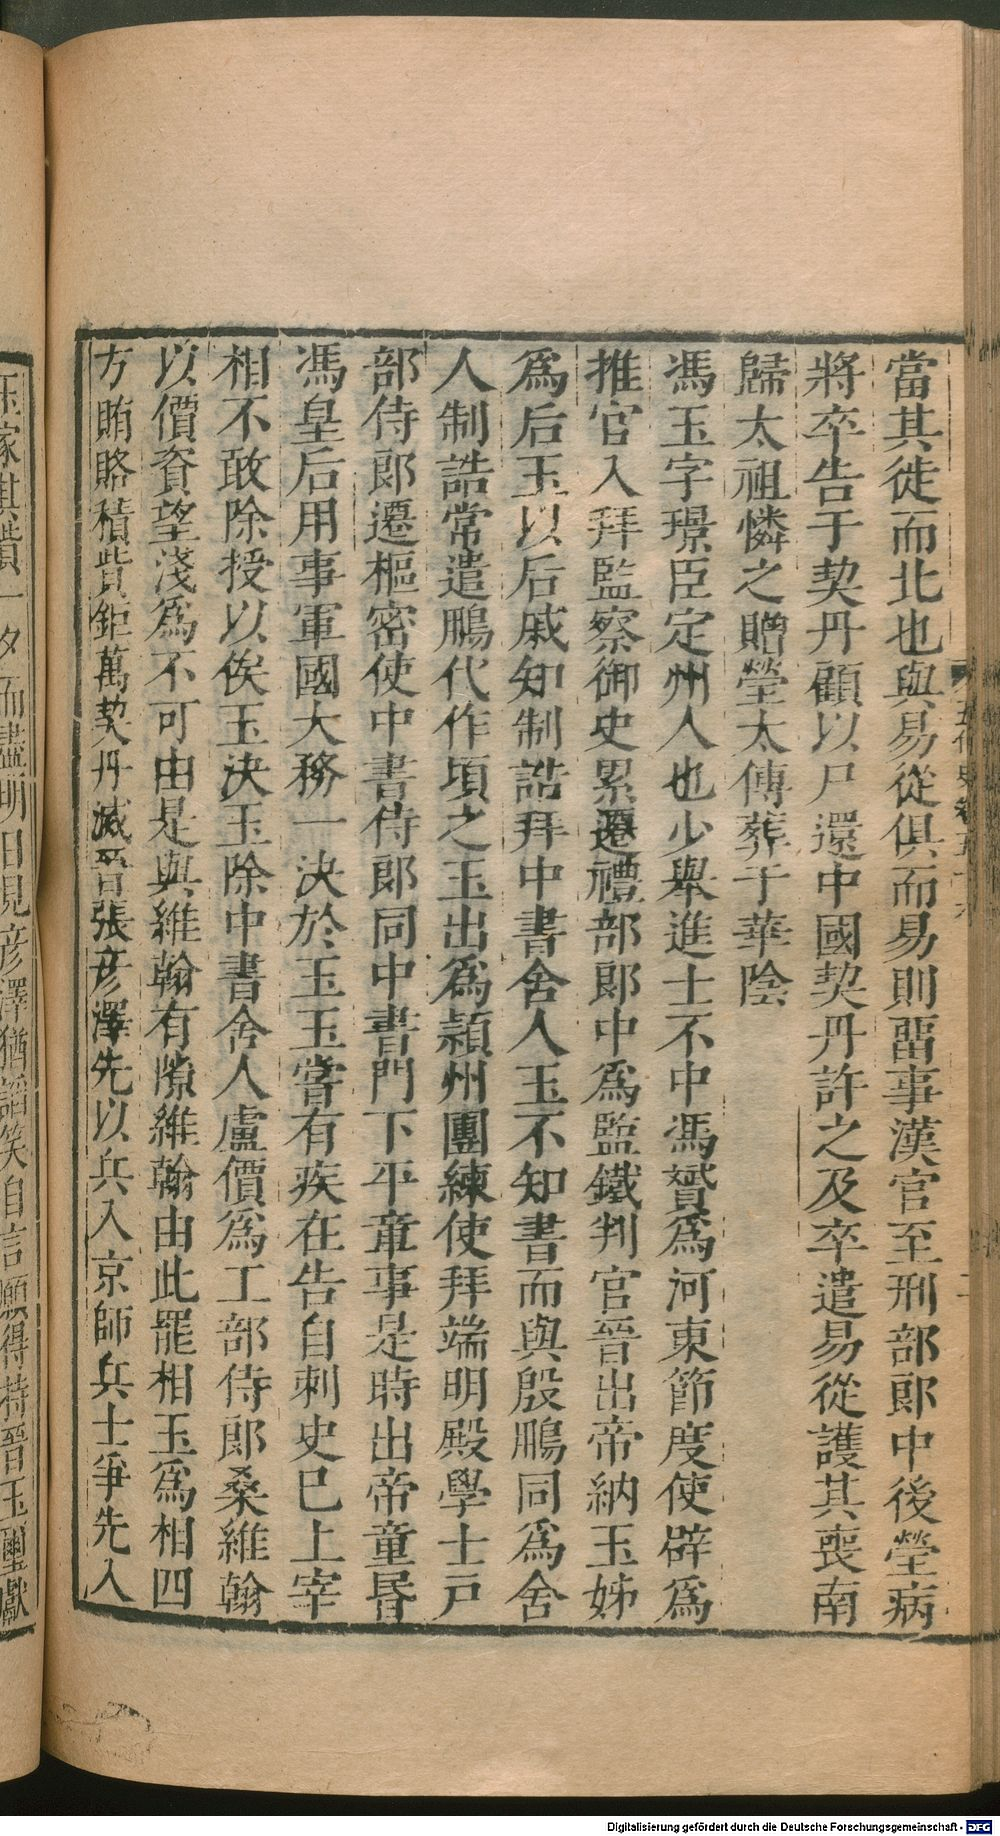 當其徙而北也與易從俱而易則畱事漢官至刑部郎中後瑩病
將卒告于契丹顧以尸還中國契丹許之及卒遣易從護其喪南
歸太祖憐之贈瑩太傅葬于華陰
馮玉字璟臣定州人也少舉進士不中馮贇爲河東節度使辟爲
推官入拜監察御史累遷禮部郎中爲監鐵判官晉出帝納玉姊
爲后玉以后戚知制誥拜中書舍人玉不知書而與殷鵬同爲舍
人制誥常遣鵬代作頃之玉出爲潁州團練使拜端明殿學士戸
部侍郎遷樞密使中書侍郎同中書門下平章事是時出帝童昬
馮皇后用事軍國大務一決於玉玉嘗有疾在告自刺史已上宰
相不敢除授以俟玉決玉除中書舍人盧價爲工部侍郎桑維翰
以價資望淺爲不可由是與維翰有隙維翰由此罷相玉爲相四
方賄賂積貲鉅萬契丹滅晉張彥澤先以兵入京師兵士爭先入
玉家其貲一夕而盡明日見彥澤猶諂笑自言願得持晉玉璽獻
Digitalisierung gefördert durch die Deutsche Forschungsgemeinschaft - DFG